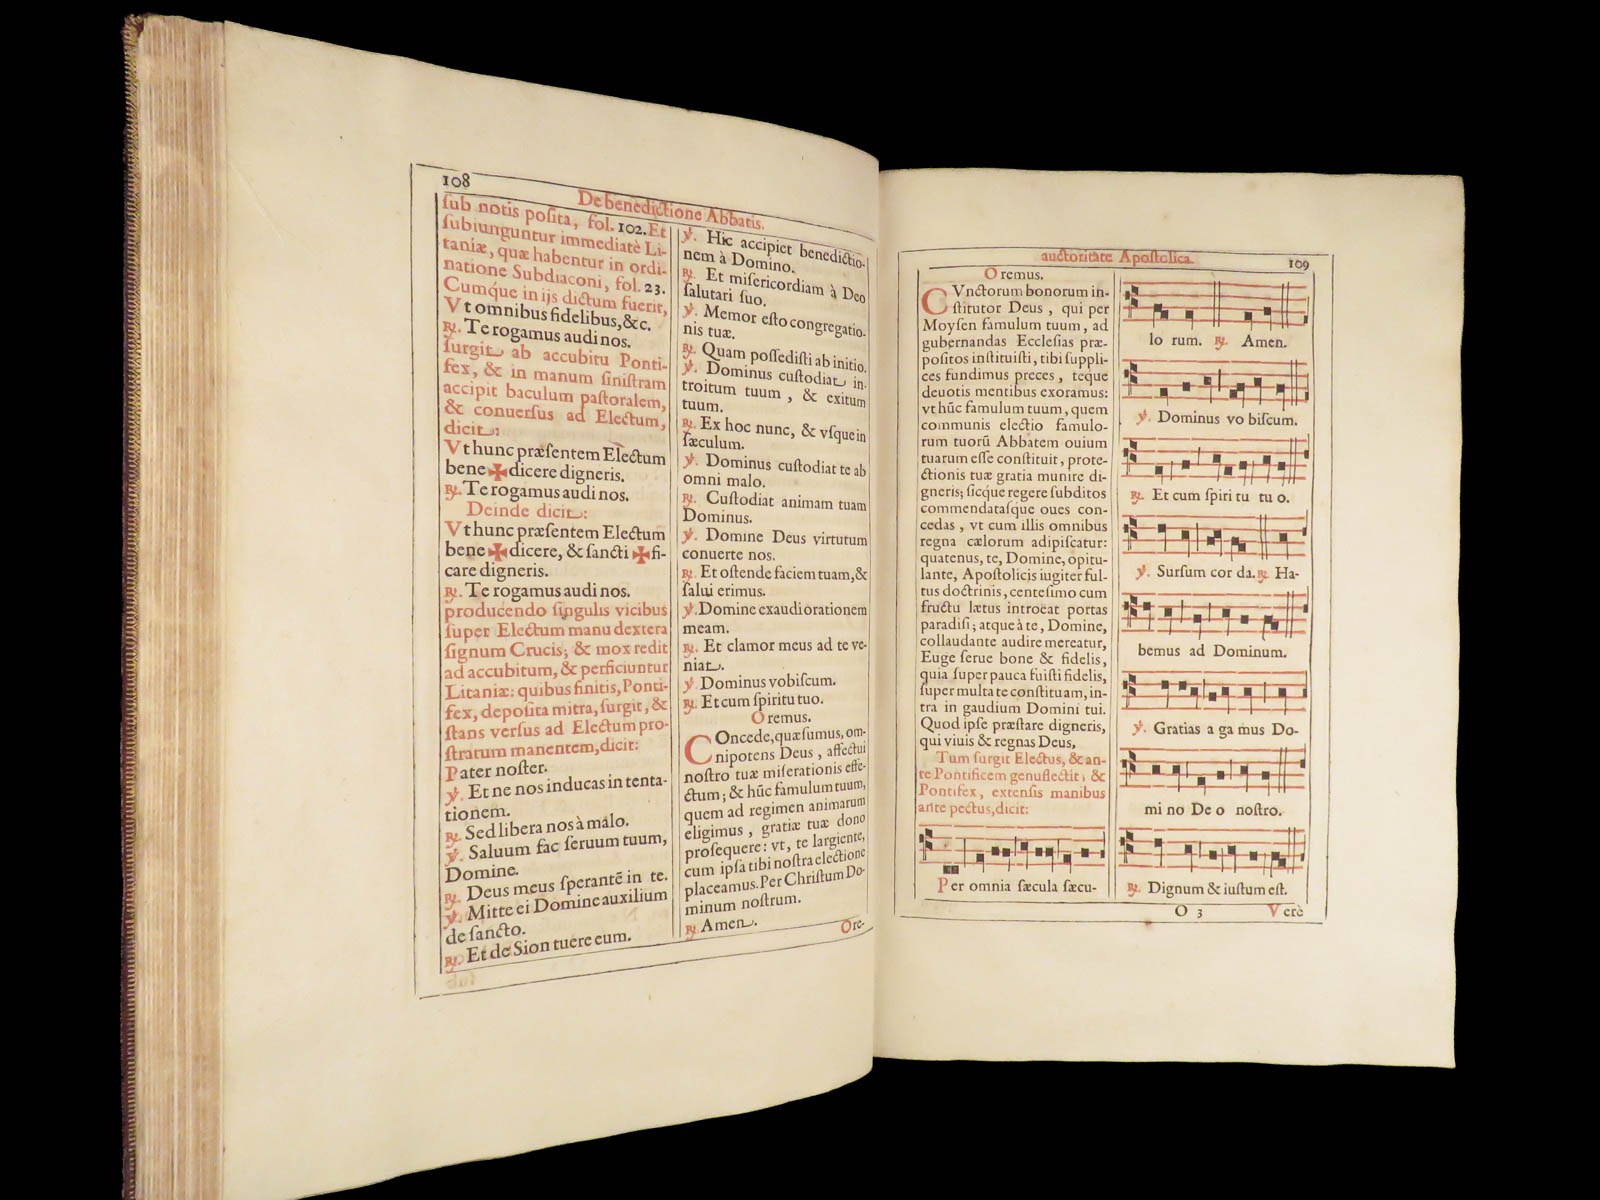 108
De benedictione Abbatis.
ſub notis poſita, fol. 102. Et
ſubiunguntur immediatè Li-
taniæ, quæ habentur in ordi-
natione Subdiaconi, fol. 23.
Cumq́ue in ijs dictum fuerit,
Vt omnibus fidelibus, &c.
℟. Te rogamus audi nos.
ſurgit ab accubitu Ponti-
fex, & in manum ſiniſtram
accipit baculum paſtoralem,
& conuerſus ad Electum,
dicit:
Vt hunc præſentem Electum
bene ✠ dicere digneris.
℟. Te rogamus audi nos.
Deinde dicit:
Vt hunc præſentem Electum
bene ✠ dicere, & ſancti ✠ fi-
care digneris.
℟. Te rogamus audi nos.
producendo ſingulis vicibus
ſuper Electum manu dextera
ſignum Crucis; & mox redit
ad accubitum, & perficiuntur
Litaniæ: quibus finitis, Ponti-
fex, depoſita mitra, ſurgit, &
ſtans verſus ad Electum pro-
ſtratum manentem, dicit:
Pater noſter.
℣. Et ne nos inducas in tenta-
tionem.
℟. Sed libera nos à malo.
℣. Saluum fac ſeruum tuum,
Domine.
℟. Deus meus ſperantē in te.
℣. Mitte ei Domine auxilium
de ſancto.
℟. Et de Sion tuere eum.
℣. Hic accipiet benedictio-
nem à Domino.
℟. Et miſericordiam à Deo
ſalutari ſuo.
℣. Memor eſto congregatio-
nis tuæ.
℟. Quam poſſediſti ab initio.
℣. Dominus cuſtodiat in-
troitum tuum, & exitum
tuum.
℟. Ex hoc nunc, & vſque in
ſæculum.
℣. Dominus cuſtodiat te ab
omni malo.
℟. Cuſtodiat animam tuam
Dominus.
℣. Domine Deus virtutum
conuerte nos.
℟. Et oſtende faciem tuam, &
ſalui erimus.
℣. Domine exaudi orationem
meam.
℟. Et clamor meus ad te ve-
niat.
℣. Dominus vobiſcum.
℟. Et cum ſpiritu tuo.
Oremus.
COncede, quæſumus, om-
nipotens Deus, affectui
noſtro tuæ miſerationis effe-
ctum; & hūc famulum tuum,
quem ad regimen animarum
eligimus, gratiæ tuæ dono
proſequere: vt, te largiente,
cum ipſa tibi noſtra electione
placeamus. Per Chriſtum Do-
minum noſtrum.
℟. Amen.
Ore-
auctoritate Apoſtolica.
109
Oremus.
CVnctorum bonorum in-
ſtitutor Deus, qui per
Moyſen famulum tuum, ad
gubernandas Eccleſias præ-
poſitos inſtituiſti, tibi ſuppli-
ces fundimus preces, teque
deuotis mentibus exoramus:
vt hūc famulum tuum, quem
communis electio famulo-
rum tuorū Abbatem ouium
tuarum eſſe conſtituit, prote-
ctionis tuæ gratia munire di-
gneris; ſicque regere ſubditos
commendataſque oues con-
cedas, vt cum illis omnibus
regna cælorum adipiſcatur:
quatenus, te, Domine, opitu-
lante, Apoſtolicis iugiter ful-
tus doctrinis, centeſimo cum
fructu lætus introeat portas
paradiſi; atque à te, Domine,
collaudante audire mereatur,
Euge ſerue bone & fidelis,
quia ſuper pauca fuiſti fidelis,
ſuper multa te conſtituam, in-
tra in gaudium Domini tui.
Quod ipſe præſtare digneris,
qui viuis & regnas Deus,
Tum ſurgit Electus, & an-
te Pontificem genuflectit, &
Pontifex, extenſis manibus
ante pectus, dicit:
Per omnia ſæcula ſæcu-
lo rum. ℟. Amen.
℣. Dominus vo biſcum.
℟. Et cum ſpiri tu tu o.
℣. Surſum cor da. ℟. Ha-
bemus ad Dominum.
℣. Gratias a ga mus Do-
mi no De o noſtro.
℟. Dignum & iuſtum eſt.
O 3
Verè